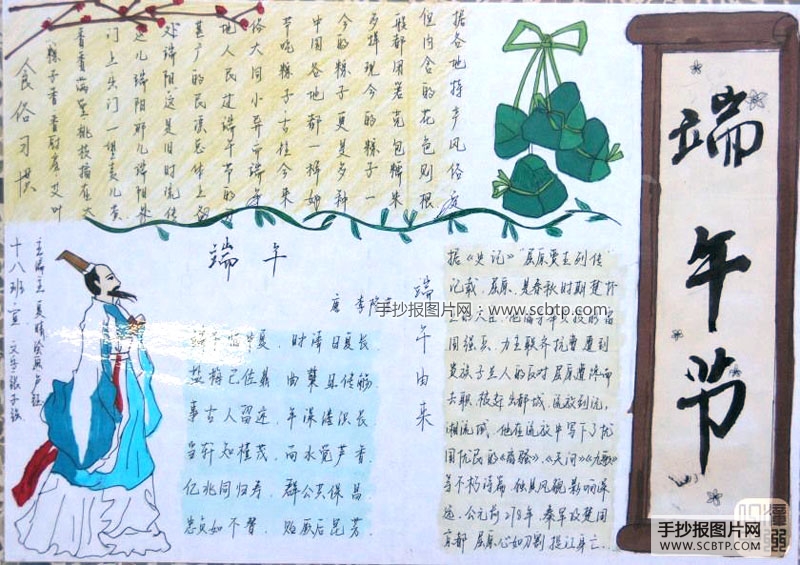 端午节
据各地特产风俗
但内含的花色则根
般都用箬壳包糯米
多样现今的粽子一
今的粽子更是多种
中国各地都一样如
节吃粽子古往今来
俗大同小异而端午
地人民过端午节的
甚广的民
对端阳这是旧时流传
这儿端阳那儿端阳
香香满堂桃枝插在大
粽子香香厨房艾叶
食俗习惯
端午
唐 李隆基
端午临中夏 时清日复长
盐梅已佐鼎 曲糵且传觞
事古人留迹 年深缕积长
当轩知槿茂 向水觉芦香
亿兆同归寿 群公共保昌
忠贞如不替 贻厥后昆芳
端午由来
据《史记》"屈原贾生列传"
记载,屈原,是春秋时期楚怀
王的大臣。他倡导举贤授能富
国强兵,力主联齐抗秦遭到
贵族子兰人的反对屈原遭谗而
去职,被赶出都城,流放到沅,
湘流域。他在流放中写下了忧
国忧民的《离骚》、《天问》《九歌》
等不朽诗篇 独具风貌影响深
远。公元前278年,秦军攻楚国
京都 屈原心如刀割
手抄报图片网:www.scbtp.com
手抄报图片网
WWW.SCBTP.COM